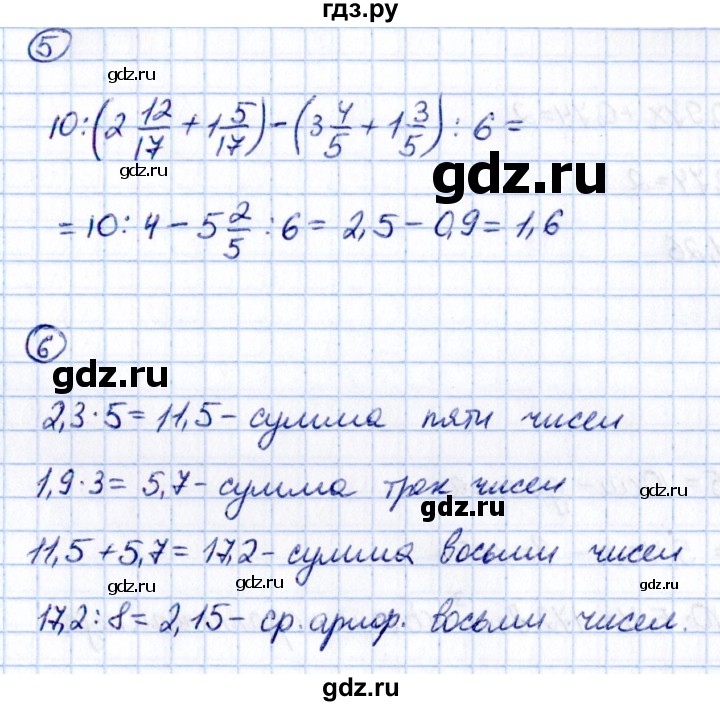 гдз.ру
5
gdz.ru
10:(2 12/17 + 1 5/17) - (3 4/5 + 1 3/5) : 6 =
gdz.ru
gdz.ru
gdz.ru
= 10 : 4 - 5 2/5 : 6 = 2,5 - 0,9 = 1,6
6
gdz.ru
gdz.ru
2,3 · 5 = 11,5 - сумма пяти чисел
1,9 · 3 = 5,7 - сумма трех чисел
gdz.ru
gdz.ru
11,5 + 5,7 = 17,2 - сумма восьми чисел
gdz.ru
gdz.ru
gdz.ru
17,2 : 8 = 2,15 - ср. арифр. восьми чисел.
gdz.ru